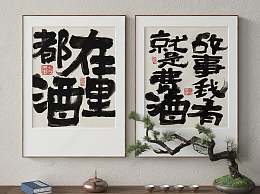 故事我有
就是费酒
都在
酒里